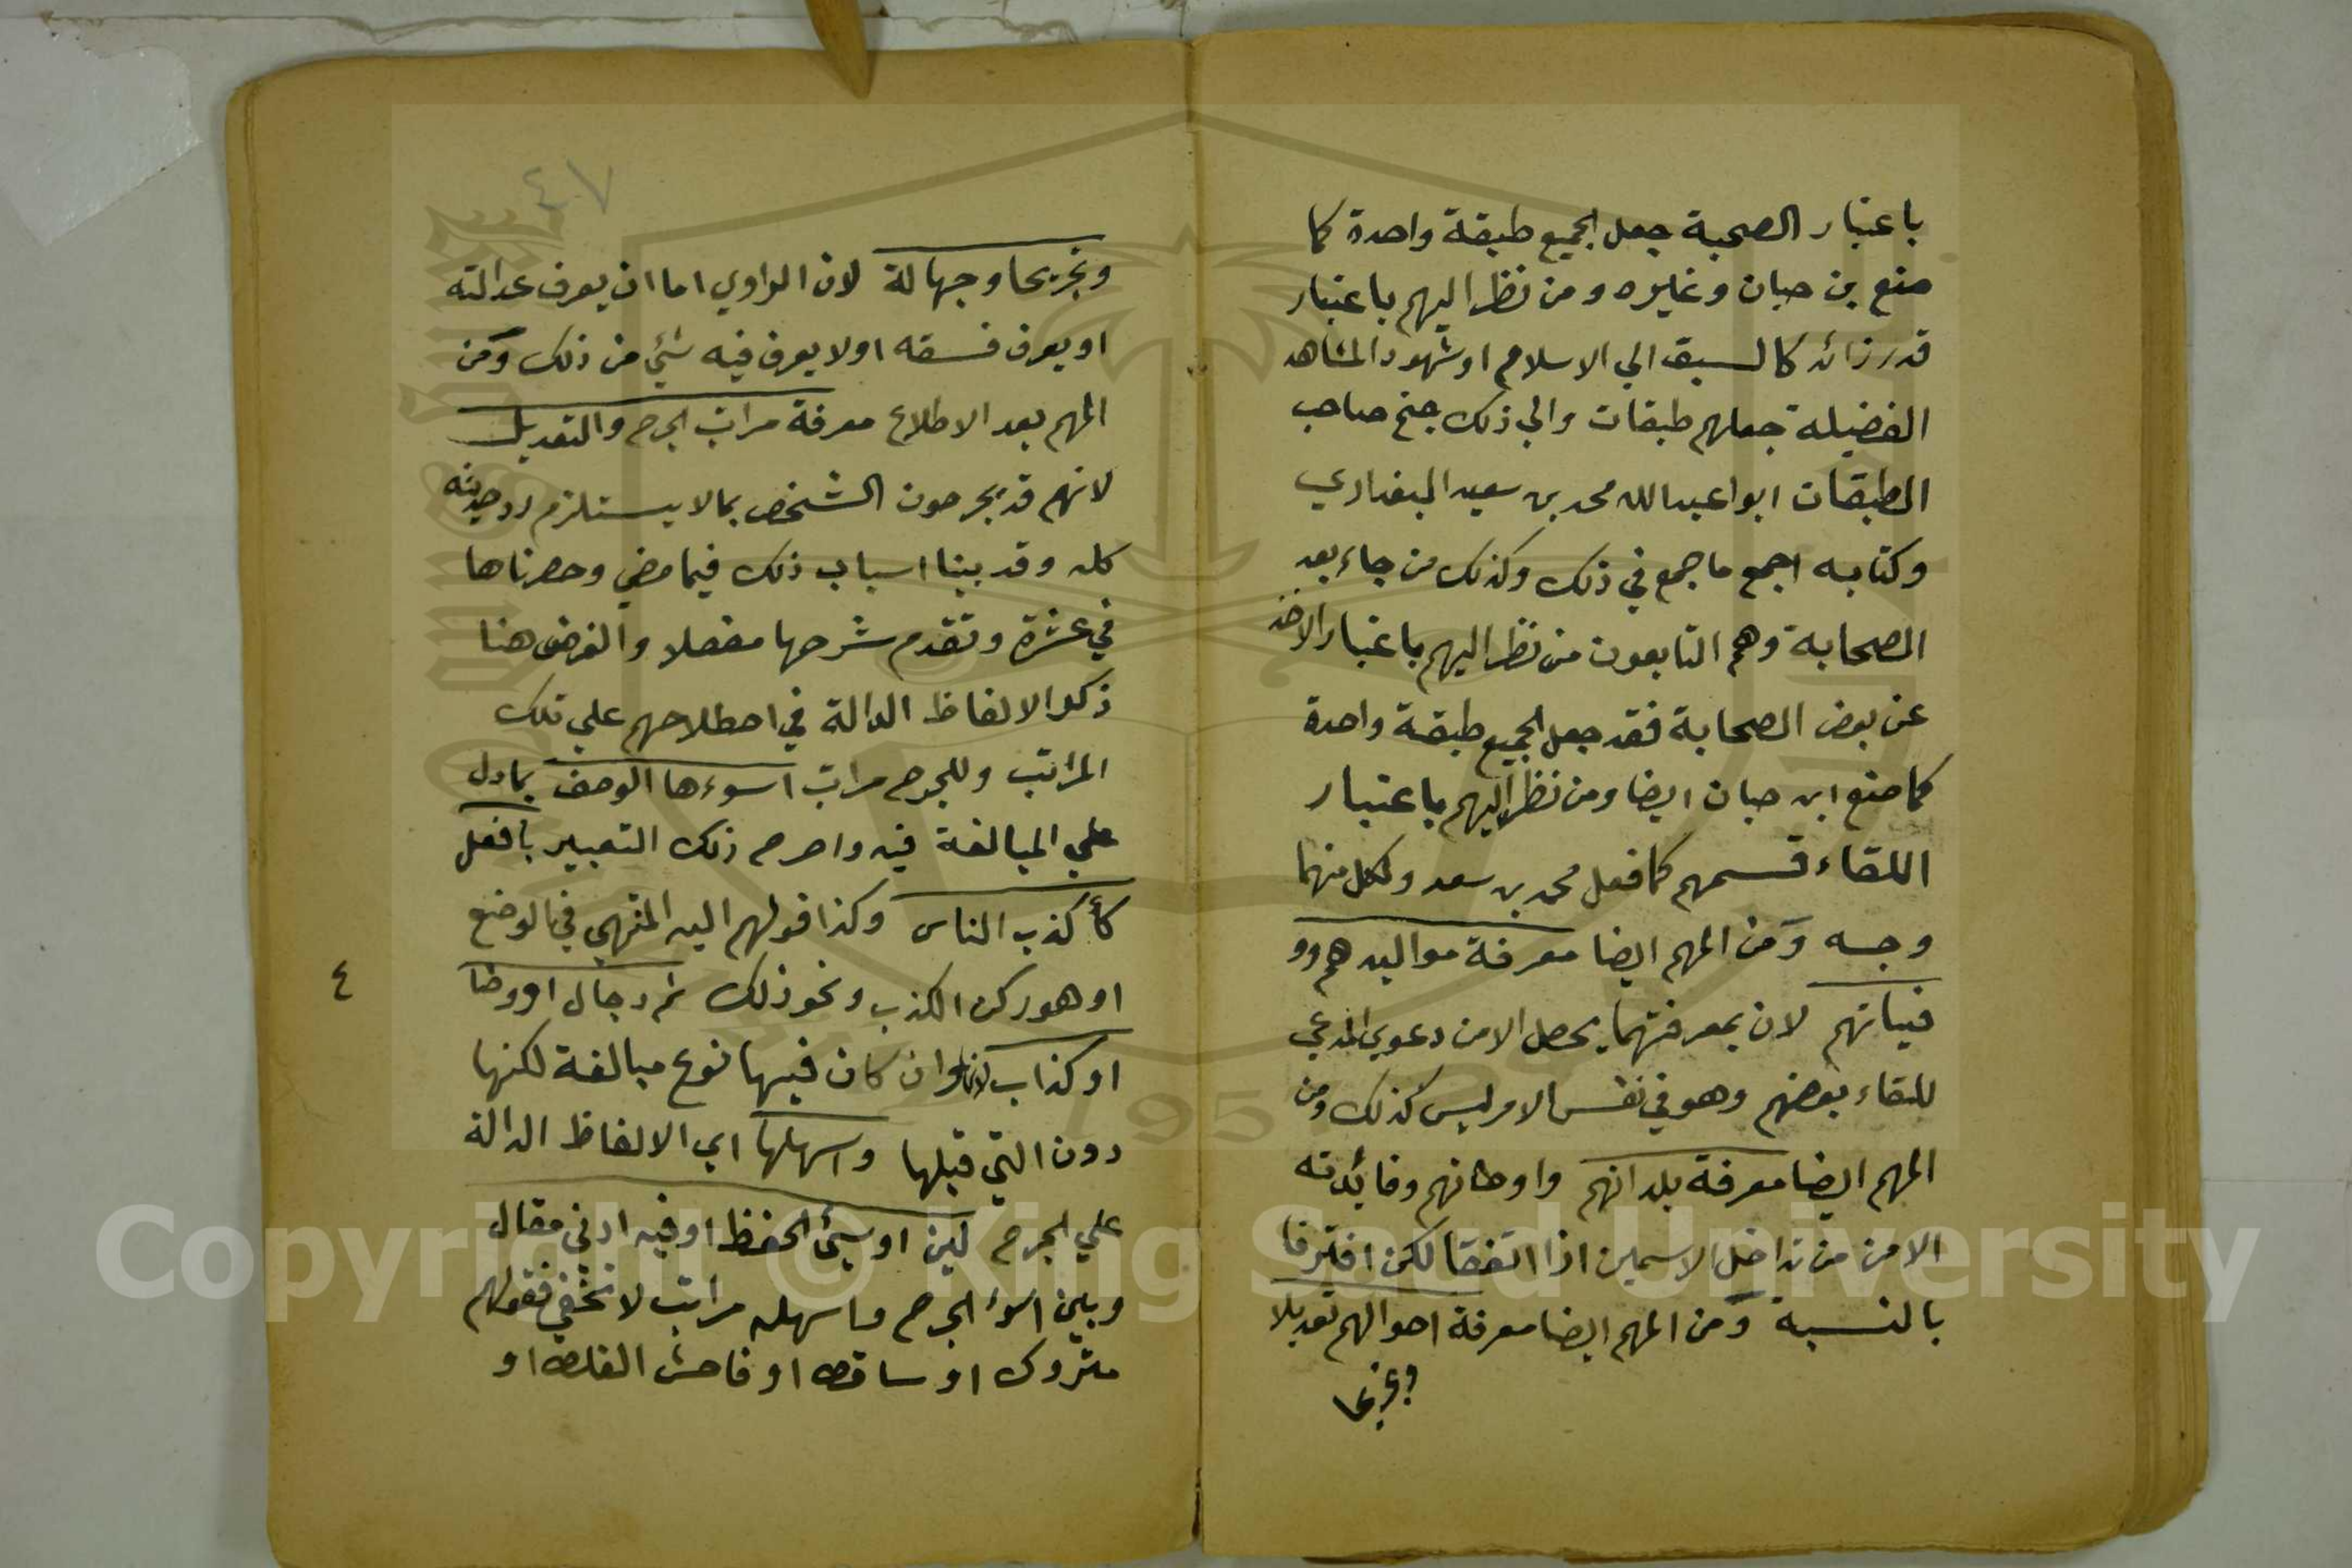 باعتبار الصحبة جعل الجميع طبقة واحدة كما
صنع بن حبان وغيره ومن نظر اليهم باعتبار
قدر زائد كالسبق الي الاسلام او شهود المشاهد
الفضيلة جعلهم طبقات والي ذلك جنح صاحب
الطبقات ابوا عبدالله محمد بن سعيد البغدادي
وكتابه اجمع ما جمع في ذلك وكذلك من جاء بعد
الصحابة وهم التابعون من نظر اليهم باعتبار الاخذ
عن بعض الصحابة فقد جعل الجميع طبقة واحدة
كما صنع ابن حبان ايضا ومن نظر اليهم باعتبار
اللقاء قسمهم كما فعل محمد بن سعد ولكل منهما
وجه ومن المهم ايضا معرفة مواليدهم وو
فياتهم لان بمعرفتهما يحصل الامن دعوي المدعي
للقاء بعضهم وهو في نفس الامر ليس كذلك ومن
المهم ايضا معرفة بلدانهم واوطانهم وفائدته
الامن من تداخل الاسمين اذا اتفقا لكن افترقا
بالنسبة ومن المهم ايضا معرفة احوالهم تعديلا
وتجريحا
٤٧
وتجريحا وجهالة لان الراوي اما ان يعرف عدالته
او يعرف فسقه اولا يعرف فيه شئ من ذلك ومن
المهم بعد الاطلاع معرفة مراتب الجرح والتعديل
لانهم قد يجرحون الشخص بمالا يستلزم رد حديثه
كله وقد بينا اسباب ذلك فيما مضي وحصرناها
في عشرة وتقدم شرحها مفصلا والغرض هنا
ذكر الالفاظ الدالة في اصطلاحهم علي تلك
المراتب وللجرح مراتب اسوءها الوصف بمادل
علي المبالغة فيه واصرح ذلك التعبير بأفعل
كأكذب الناس وكذا قولهم اليه المنتهي في الوضع
او هو ركن الكذب ونحو ذلك ثم دجال او وضا
٤
او كذاب لانها وان كان فيها نوع مبالغة لكنها
دون التي قبلها واسهلها اي الالفاظ الدالة
علي الجرح لين او سيئ الحفظ او فيه ادني مقال
وبين اسوء الجرح واسهله مراتب لا تخفي فقولهم
متروك او ساقط او فاحش الغلط او
Copyright © King Saud University